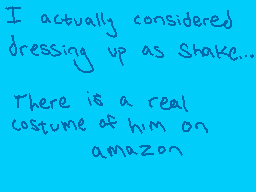 I actually considered
dressing up as Shake...
There is a real
costume of him on
amazon